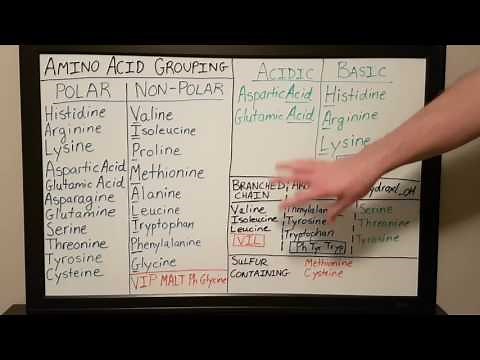 AMINO ACID GROUPING
POLAR
NON-POLAR
Histidine
Arginine
Lysine
Aspartic Acid
Glutamic Acid
Asparagine
Glutamine
Serine
Threonine
Tyrosine
Cysteine
Valine
Isoleucine
Proline
Methionine
Alanine
Leucine
Tryptophan
Phenylalanine
Glycine
VIP MALT Ph Glycine
ACIDIC
Aspartic Acid
Glutamic Acid
BASIC
Histidine
Arginine
Lysine
BRANCHED
CHAIN
Valine
Isoleucine
Leucine
VIL
Tyrosine
Tryptophan
Ph Tyr Tryp
OH
Serine
Threonine
Tyrosine
SULFUR
CONTAINING
Methionine
Cysteine